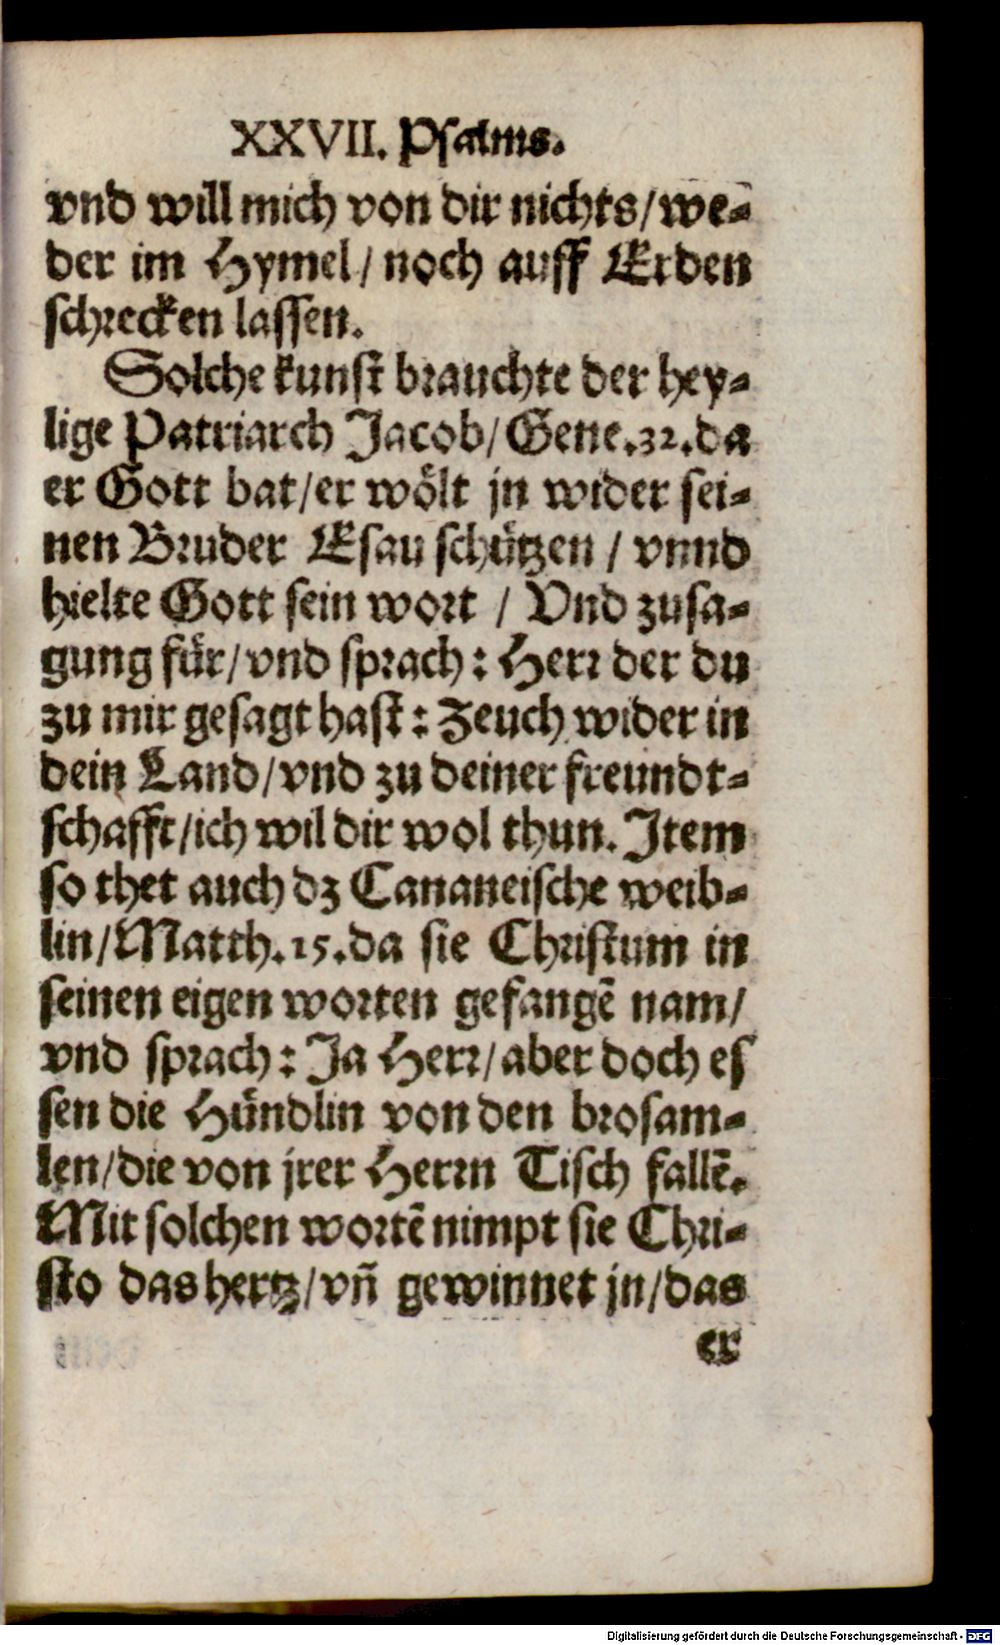 XXVII. Psalms.
vnd will mich von dir nichts/we-
der im Hymel/ noch auff Erden
schrecken lassen.
Solche kunst brauchte der hey-
lige Patriarch Jacob/Gene.32.da
er Gott bat/er wölt jn wider sei-
nen Bruder Esau schützen / vnnd
hielte Gott sein wort / Vnd zusa-
gung für/vnd sprach: Herr der du
zu mir gesagt hast: Zeuch wider in
dein Land/vnd zu deiner freundt-
schafft/ich wil dir wol thun. Item
so thet auch dz Cananeische weib-
lin/Matth.15.da sie Christum in
seinen eigen worten gefangē nam/
vnd sprach: Ja Herr/aber doch es
sen die Hündlin von den brosam-
len/die von jrer Herrn Tisch fallē.
Mit solchen wortē nimpt sie Chri-
sto das hertz/vñ gewinnet jn/das
er
Digitalisierung gefördert durch die Deutsche Forschungsgemeinschaft - DFG